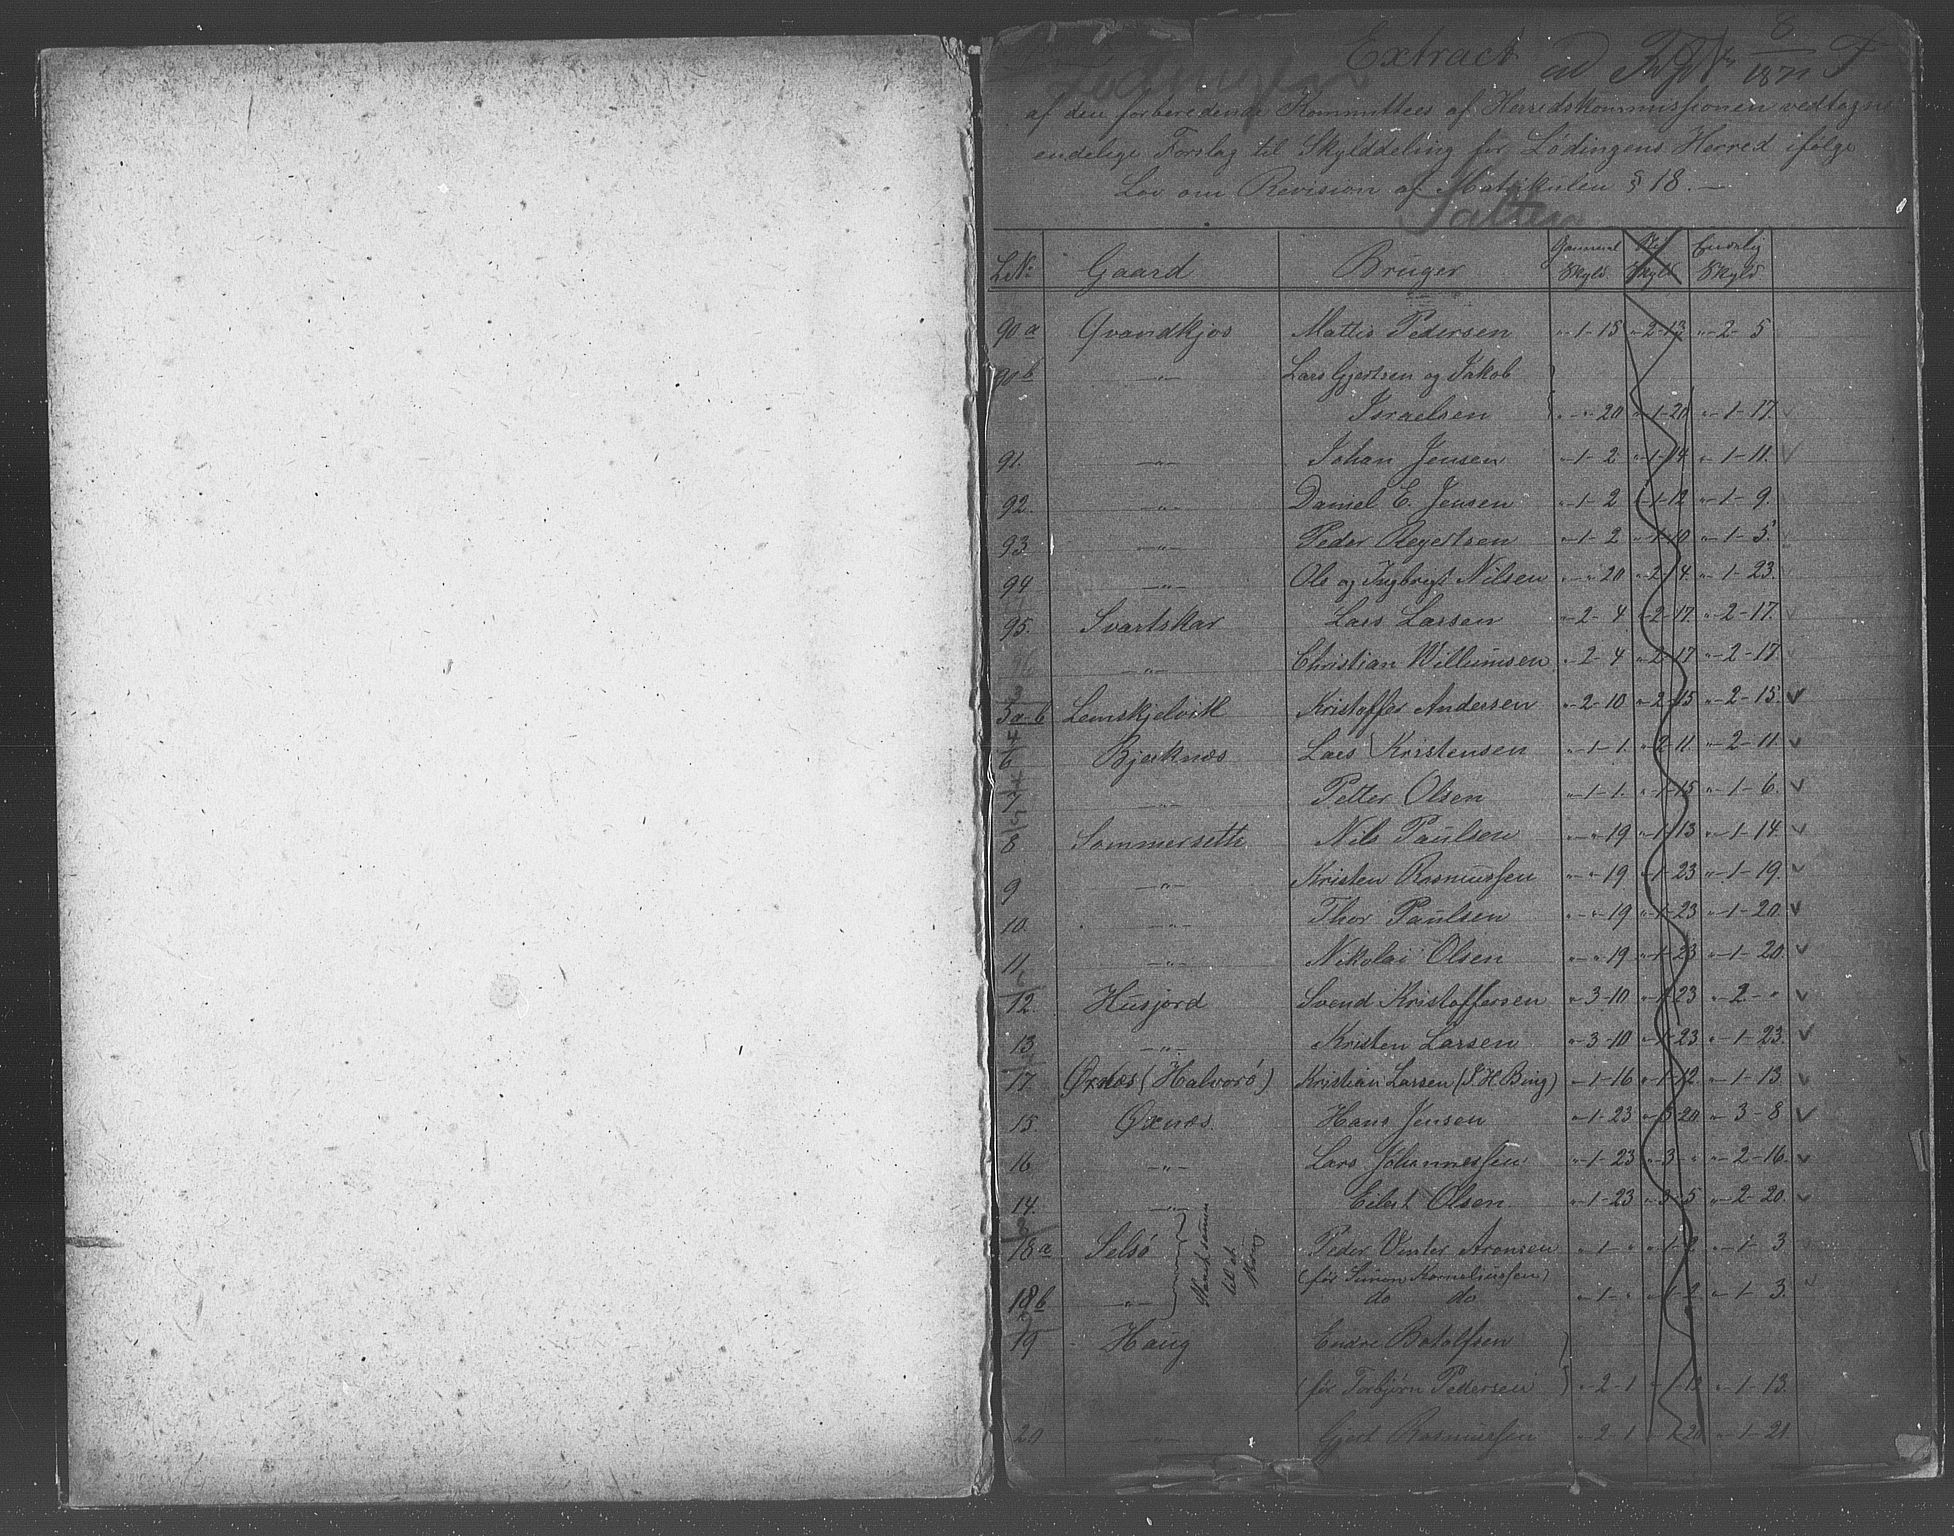 Extract
Lødingen
8
1871
af den forberedende Kommittees af Herredskommissionen vedtagne
endelige Forslag til Skylddeling for Lødingens Herred ifølge
Lov om Revision af Matrikulen § 18. —
Salten
L.№ Gaard Bruger Gammel Skyld Ny Skyld Endelig Skyld
90a Qvandkjos Mattis Pedersen "-1-15 "-2-13 "-2-5
90b —"— Lars Gjertsen og Jakob
Israelsen "-"-20 "-1-20 "-1-17.
91. —"— Johan Jensen "-1-2 "-1-14 "-1-11.
92. —"— Daniel E. Jensen "-1-2 "-1-12 "-1-9.
93 —"— Peder Regertsen "-1-2 "-1-10 "-1-5.
94 —"— Ole og Ingbrigt Nilsen "-"-20 "-2-4. "-1-23.
95. Svartskar Lars Larsen "-2-4 "-2-17. "-2-17.
96 —"— Christian Willumsen "-2-4 "-2-17 "-2-17.
3
5a-b Lemskjelvik Kristoffer Andersen "-2-10 "-2-15 "-2-15. v
6 Bjerknæs Lars Kristensen "-1-1. "-2-11. "-2-11. v
7 —"— Petter Olsen "-1-1. "-1-15 "-1-6. v
8 Sommerseth Nils Paulsen "-"-19 "-1-13 "-1-14. v
9 —"— Kristen Rasmussen "-"-19 "-1-23 "-1-19. v
10. —"— Thor Paulsen "-"-19 "-1-23 "-1-20. v
11. —"— Nikolai Olsen "-"-19 "-1-23 "-1-20. v
12. Husjord Svend Kristoffersen "-3-10 "-1-23 "-2-" v
13 —"— Kristen Larsen "-3-10 "-1-23 "-1-23. v
17. Øxnæs (Halvorö) Kristian Larsen (S. H. Bing) "-1-16 "-1-12. "-1-13. v
15. Øxnæs. Hans Jensen "-1-23 "-3-20. "-3-8 v
16 —"— Lars Johannessen "-1-23 "-3-" "-2-16. v
14. —"— Eilert Olsen "-1-23 "-3-5 "-2-20. v
18a Selsö Peder Vinter Aronsen "-1-" "-1-2 "-1-3
(før Simon Korneliussen)
18b —"— do do "-1-" "-1-2. "-1-3. v
19 Haug Endre Botolfsen
(før Torbjörn Pedersen) "-2-1 "-1-12 "-1-13.
20 —"— Gjert Rasmussen "-2-1 "-1-20 "-1-21